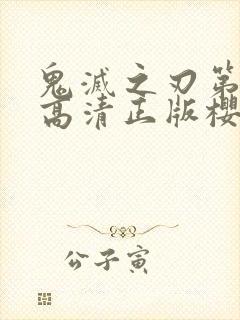 鬼滅之刃第
高清正版櫻
公子寅